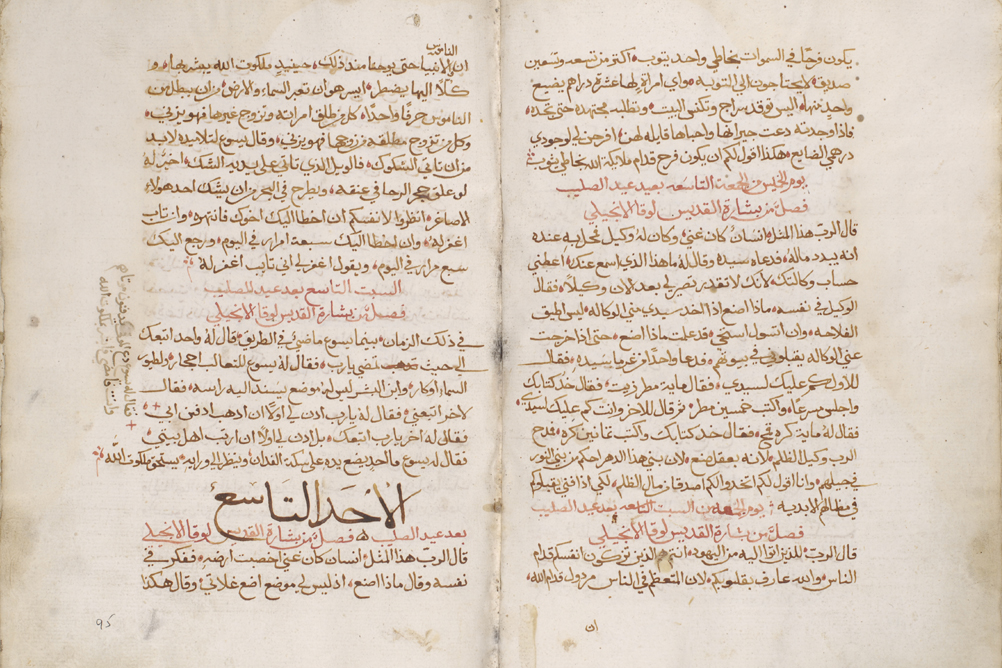 يكون فرحًا في السموات بخاطي واحد يتوب اكثر من تسعه وتسعين
صديق لا يحتاجون الي التوبه واي امراة لها عشرة دراهم يضيع
واحد منها اليس توقد سراج وتكنس البيت وتطلبه مجتهده حتى تجده
فاذا وجدته دعت جيرانها واحباها قايله لهن افرحن لي لوجودي
درهمي الضايع هكذا اقول لكم ان يكون فرح قدام ملايكة الله بخاطي يتوب
يوم الخميس من الجمعة التاسعه بعد عيد الصليب
فصل من بشارة القديس لوقا الانجيلي
قال الرب هذا المثل انسان كان غني وكان له وكيل تمحل به عنده
انه يبدد ماله فدعاه سيده وقال له ما هذا الذي اسمع عنك اعطني
حساب وكالتك لانك لا تقدر تصير لي بعد الان وكيلا فقال
الوكيل في نفسه ماذا اصنع اذا اخد سيدي مني الوكاله ليس اطيق
الفلاحه وان اتسول استحي قد علمت ماذا اصنع حتى اذا خرجت
عني الوكاله يقبلوني في بيوتهم فدعا واحدًا من غرما سيده فقال
للاول كم عليك لسيدي فقال ماية مطر زيت فقال خد كتابك
واجلس سرعاه واكتب خمسين مطر ثم قال للاخر وانت كم عليك لسيدي
فقال له ماية كر قمح فقال خد كتابك واكتب تمانين كر فمدح
الرب وكيل الظلم لانه بعقل صنع لان بني هذا الدهر احكم من بني النور
في جيلهم وانا اقول لكم اتخدوا لكم اصدقا من مال الظلم لكي اذا فني يقبلوكم
في مظالهم الابديه يوم الجمعه من السبت التاسعه بعد عيد الصليب
فصل من بشارة القديس لوقا الانجيلي
قال الرب للذين اتوا اليه من اليهود انتم الذين تزكون انفسكم قدام
الناس والله عارف بقلوبكم لان المتعظم في الناس مردول قدام الله
ان
الناموس
ان الانبيا حتى يوحنا مند ذلك حينيد ملكوت الله يبشر بها و
كلا اليها يضطر ايسر هو ان تعبر السماء والارض من ان يبطل من
الناموس حرفًا واحدًا كل من طلق امراته وتزوج غيرها فهو يزني
وكل من تزوج مطلقه من زوجها فهو يزني وقال يسوع لتلاميده لا بد
من ان تاتي الشكوك فالويل للذي تاتي على يديه الشك اخير له
لو علق حجر الرحا في عنقه ويطرح في البحر من ان يشك احد هولاء
الاصاغر انظروا لانفسكم ان اخطا اليك اخوك فانتهره وان تاب
اغفر له وان اخطا اليك سبعة امرار في اليوم ورجع اليك
سبع مرار في اليوم ويقول اغفر لي اني تايب اغفر له
السبت التاسع بعد عيد الصليب
فصل من بشارة القديس لوقا الانجيلي
في ذلك الزمان بينما يسوع ماضي في الطريق قال له واحد اتبعك
الى حيث تمضي يارب فقال له يسوع للتعالب احجار ولطيور
السماء اوكار وابن البشر ليس له موضع يسند اليه راسه فقال
لاخر اتبعني فقال له يارب ادن لي اولًا ان ادهب ادفن ابي
فقال له اخر يارب اتبعك بل ادن لي اولًا ان ارتب اهل بيتي
فقال له يسوع ما احد يضع يده على سكة الفدان وينظر الى ورايه يستحق ملكوت الله
الاحد التاسع
بعد عيد الصليب فصل من بشارة القديس لوقا الانجيلي
قال الرب هذا المثل انسان كان غني اخصبت ارضه ففكر في
نفسه وقال ماذا اصنع اذ ليس لي موضع اضع غلاتي وقال هكذا
95